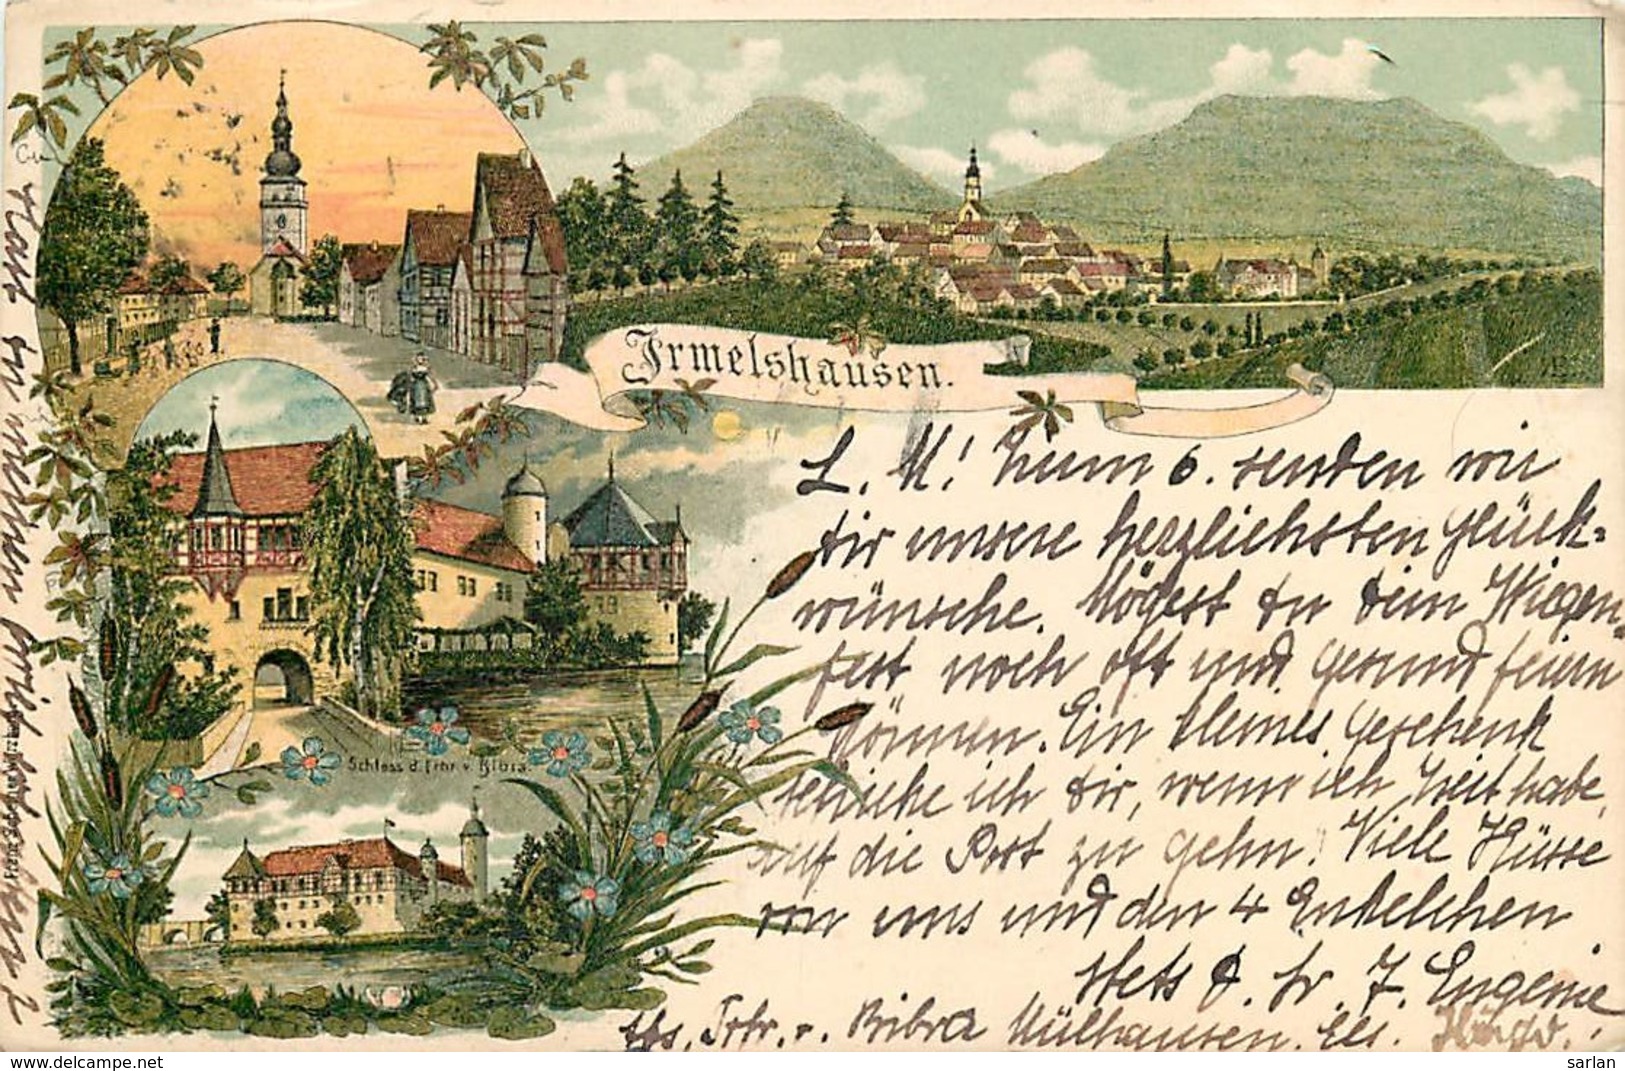 Irmelshausen.
Schloss d. Frhr. v. Bibra.
L. M.! Zum 6. senden wir
dir unsere herzlichsten Glück-
wünsche. Mögest du dein Wiegen-
fest noch oft und gesund feiern
können. Ein kleines Geschenk
schicke ich dir, wenn ich Zeit habe,
auf die Post zu gehn. Viele Küsse
von uns und den 4 Enkelchen
Stets d. tr. T. Eugenie
Frhr. v. Bibra Mülhausen. Els.
Hast du meinen Brief
sarlan